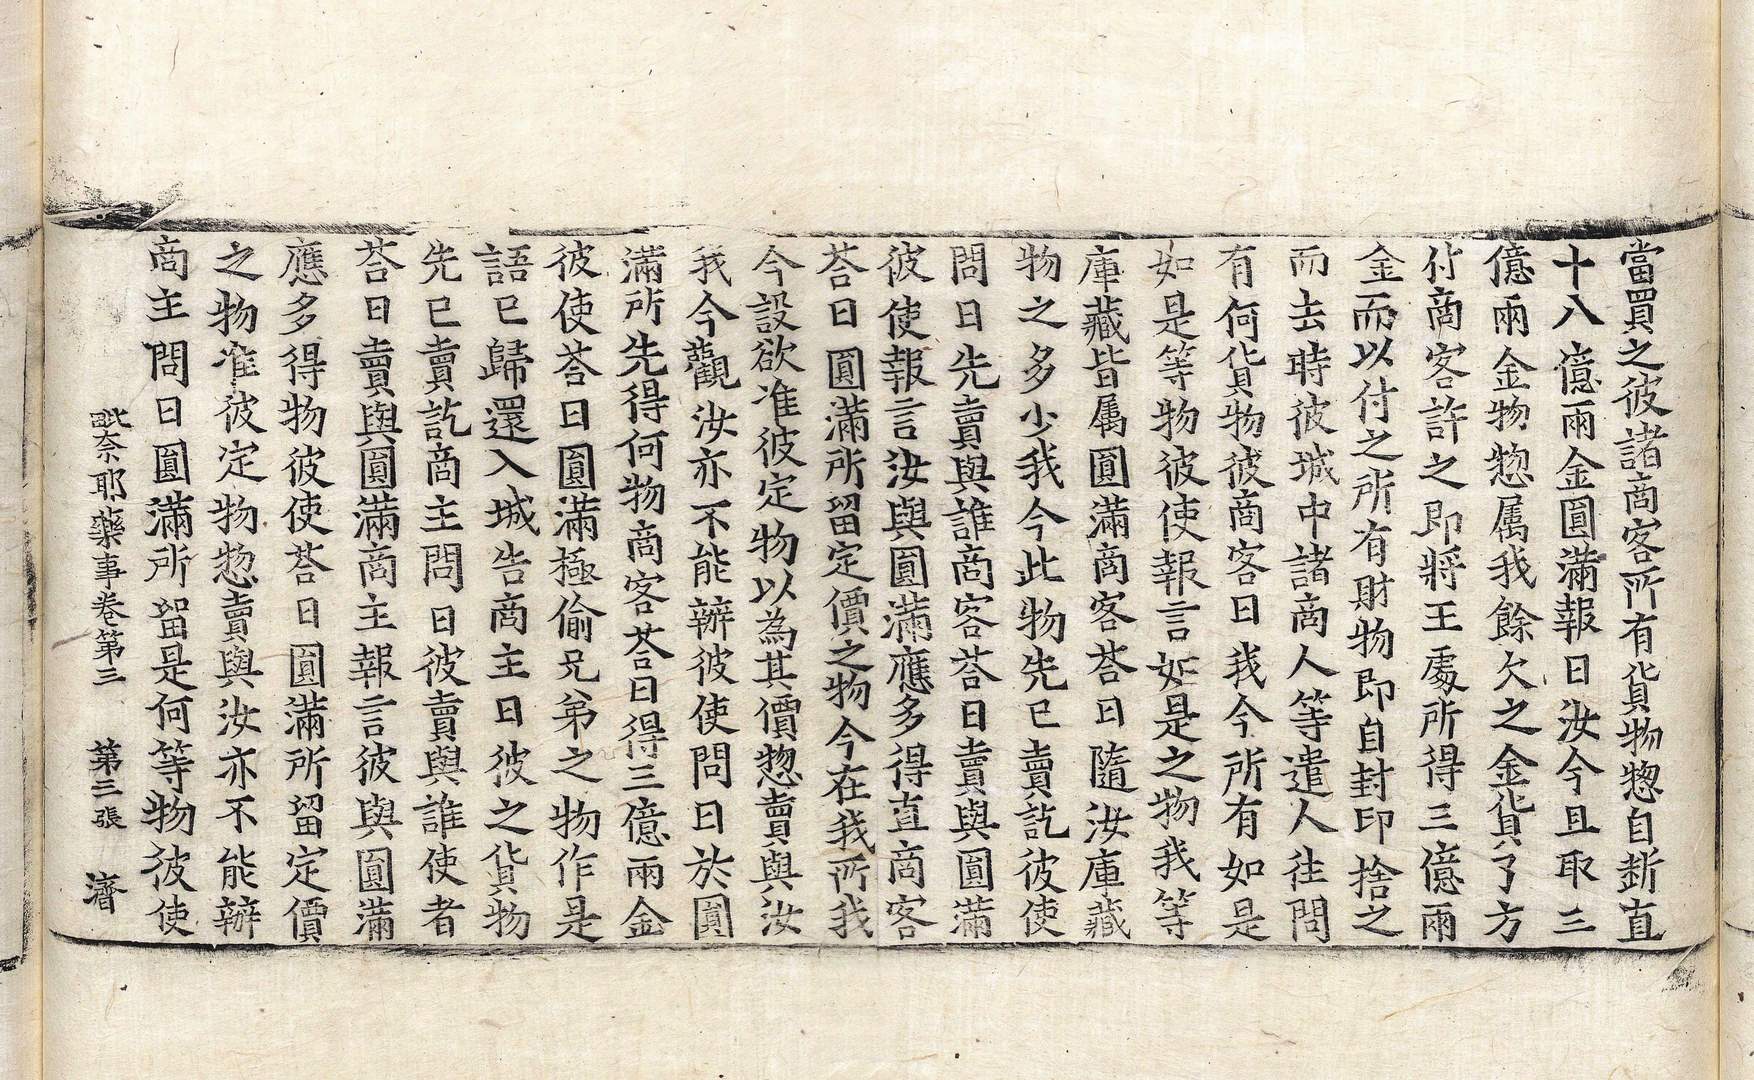 當買之彼諸商客所有貨物惣自斷直
十八億兩金圓滿報曰汝今且取三
億兩金物惣属我餘欠之金貨了方
付商客許之即將王處所得三億兩
金而以付之所有財物即自封印捨之
而去時彼城中諸商人等遣人往問
有何貨物彼商客曰我今所有如是
如是等物彼使報言如是之物我等
庫藏皆属圓滿商客荅曰隨汝庫藏
物之多少我今此物先已賣訖彼使
問曰先賣與誰商客荅曰賣與圓滿
彼使報言汝與圓滿應多得直商客
荅曰圓滿所留定價之物今在我所我
今設欲准彼定物以為其價惣賣與汝
我今觀汝亦不能辦彼使問曰於圓
滿所先得何物商客荅曰得三億兩金
彼使荅曰圓滿極偷兄弟之物作是
語已歸還入城告商主曰彼之貨物
先已賣訖商主問曰彼賣與誰使者
荅曰賣與圓滿商主報言彼與圓滿
應多得物彼使荅曰圓滿所留定價
之物准彼定物惣賣與汝亦不能辦
商主問曰圓滿所留是何等物彼使
毗奈耶藥事卷第三 第三張 濬